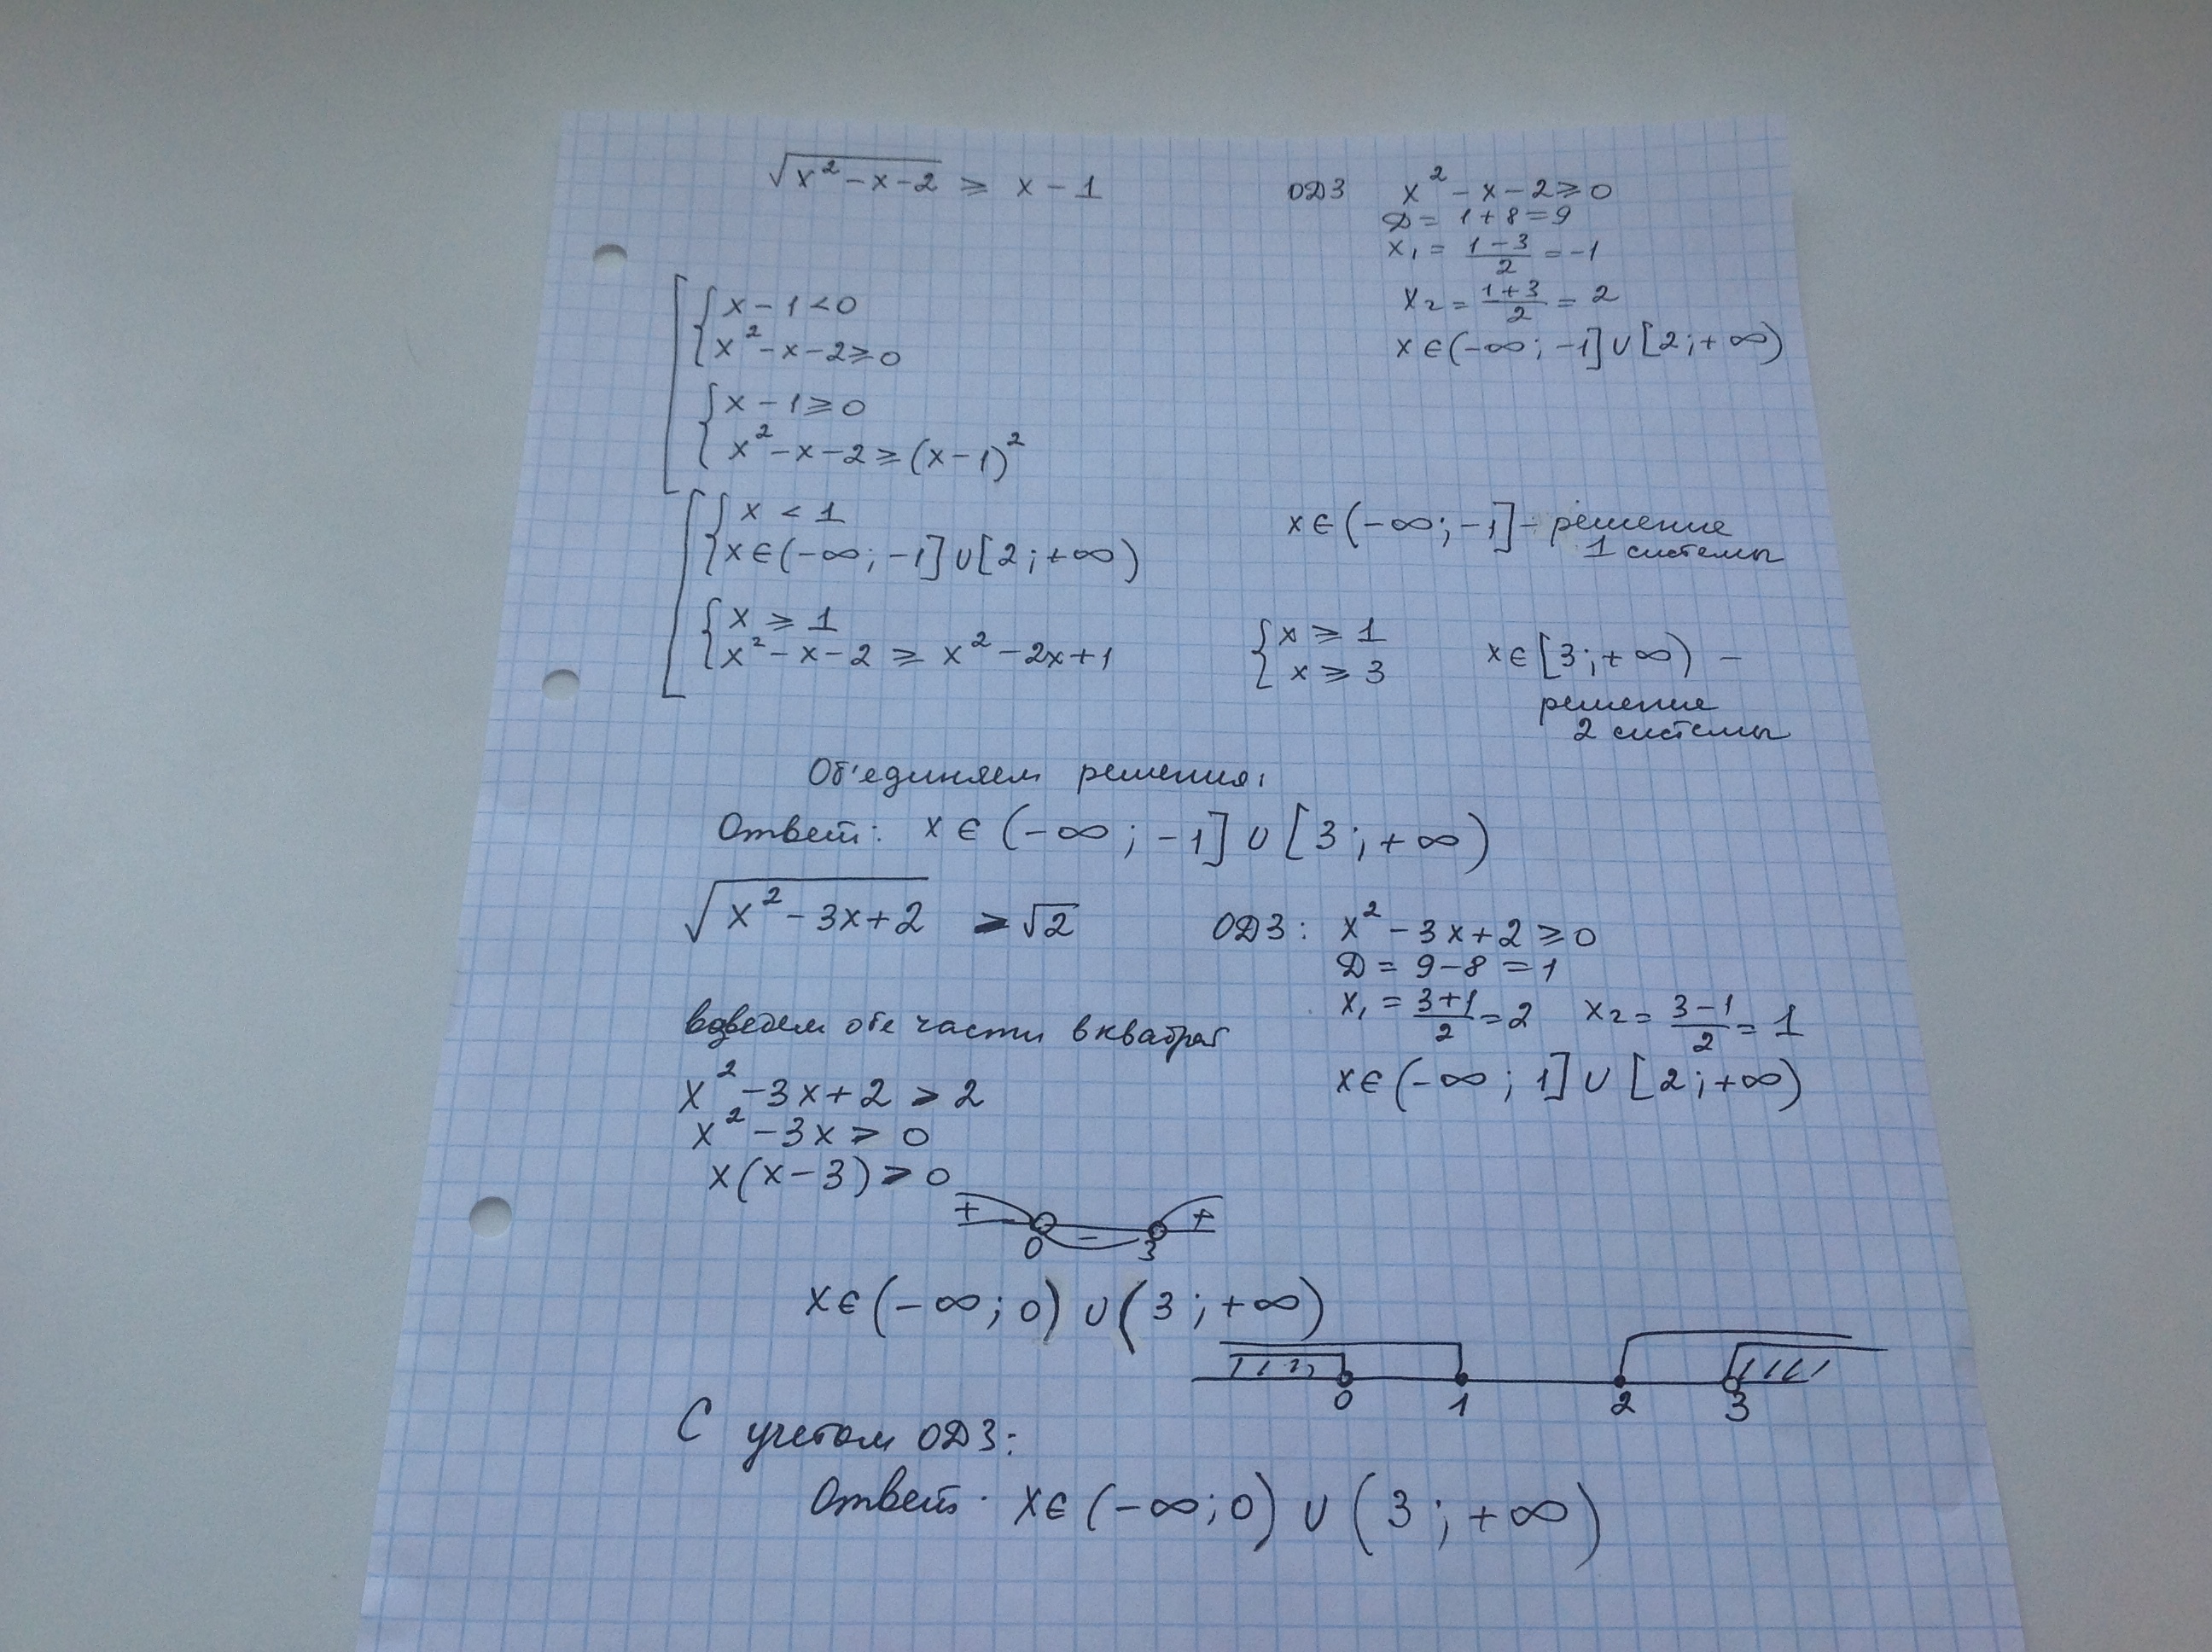 √(x² - x - 2) ≥ x - 1
ОДЗ x² - x - 2 ≥ 0
D = 1 + 8 = 9
x₁ = (1 - 3)/2 = -1
x₂ = (1 + 3)/2 = 2
x ∈ (-∞; -1] ∪ [2; +∞)
x - 1 < 0
x² - x - 2 ≥ 0
x - 1 ≥ 0
x² - x - 2 ≥ (x - 1)²
x < 1
x ∈ (-∞; -1] ∪ [2; +∞)
x ∈ (-∞; -1] - решение
1 системы
x ≥ 1
x² - x - 2 ≥ x² - 2x + 1
x ≥ 1
x ≥ 3
x ∈ [3; +∞) -
решение
2 системы
Об'единяем решения:
Ответ: x ∈ (-∞; -1] ∪ [3; +∞)
√(x² - 3x + 2) > √2
ОДЗ: x² - 3x + 2 ≥ 0
D = 9 - 8 = 1
x₁ = (3 + 1)/2 = 2 x₂ = (3 - 1)/2 = 1
x ∈ (-∞; 1] ∪ [2; +∞)
обе части в квадрат
x² - 3x + 2 > 2
x² - 3x > 0
x(x - 3) > 0
+ - +
0 3
x ∈ (-∞; 0) ∪ (3; +∞)
0 1 2 3
С учетом ОДЗ:
Ответ. x ∈ (-∞; 0) ∪ (3; +∞)